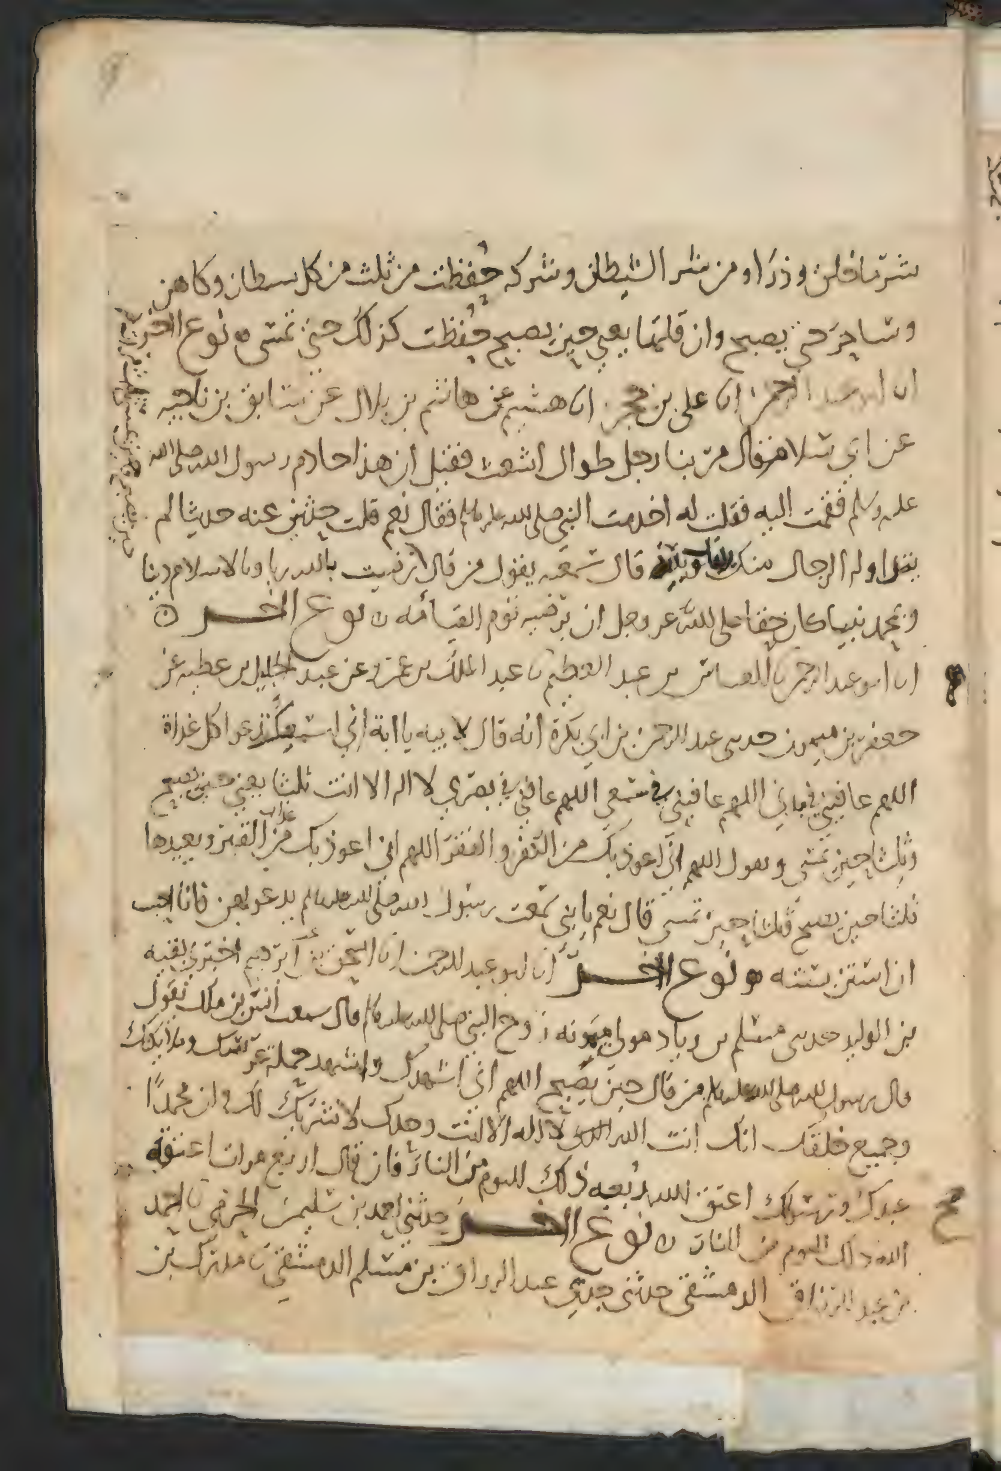 شر ما خلق وذرا ومن شر الشيطان وشركه حفظت من ثلث من كل سطان وكاهن
وساحر حتى يصبح وان قلتها يعني حين يصبح حفظت كذلك حتى تمسى نوع اخر
انا ابو عبد الرحمن انا على بن حجر انا هشيم عن هاشم بن بلال عن سابق بن ناجيه
عن ابي سلام قال مر بنا رجل طوال اشعث فقيل ان هذا خادم رسول الله صلى الله
عليه وسلم فقمت اليه فقلت له اخدمت النبي صلى الله عليه وسلم فقال نعم قلت حدثني عنه حديثا لم
الرجال بينك وبينه قال سمعته يقول من قال رضيت بالله ربا وبالاسلام دينا
وبمحمد نبيا كان حقا على الله عز وجل ان يرضيه يوم القيامه نوع اخر
انا ابو عبد الرحمن انا العباس بن عبد العظيم نا عبد الملك بن عمرو عن عبد الجليل بن عطيه عن
جعفر بن ميمون حدثنى عبد الرحمن بن ابي بكرة انه قال لابيه يا ابة اني اسمعك تدعوا كل غداة
اللهم عافني في بدني اللهم عافني في سمعي اللهم عافني في بصري لا اله الا انت ثلثا يعني حين يصبح
وثلثا حين تمسي وتقول اللهم اني اعوذ بك من الكفر والفقر اللهم اني اعوذ بك من عذاب القبر وتعيدها
ثلثا حين يصبح وثلثا حين تمسي قال نعم يا بني سمعت رسول الله صلى الله عليه وسلم يدعو بهن فانا احب
ان استن بسنته نوع اخر انا ابو عبد الرحمن انا اسحق بن ابرهيم اخبرني بقيه
بن الوليد حدثنى مسلم بن زياد مولى ميمونه زوج النبي صلى الله عليه وسلم قال سمعت انس بن ملك يقول
قال رسول الله صلى الله عليه وسلم من قال حين يصبح اللهم اني اشهدك واشهد حملة عرشك وملايكتك
وجميع خلقك انك انت الله لا اله الا انت وحدك لا شريك لك وان محمدا
عبدك ورسولك اعتق الله ربعه ذلك اليوم من النار فان قال اربع مرات اعتقه
الله ذلك اليوم من النار نوع اخر حدثني احمد بن سليمن الجرمي نا احمد
بن عبد الرزاق الدمشقى حدثنى جدي عبد الرزاق بن مسلم الدمشقى نا مدرك بن